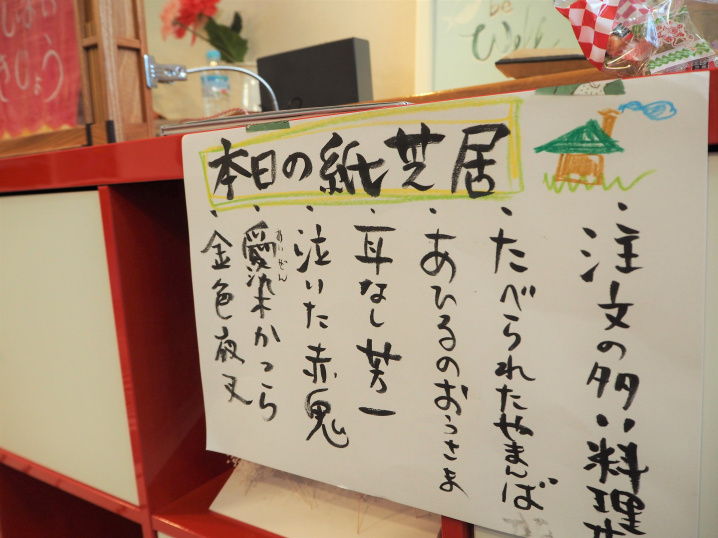 本日の紙芝居
・注文の多い料理
・たべられたやまんば
・あひるのおうさま
・耳なし芳一
・泣いた赤鬼
・愛染かつら
あいぜん
・金色夜叉
be